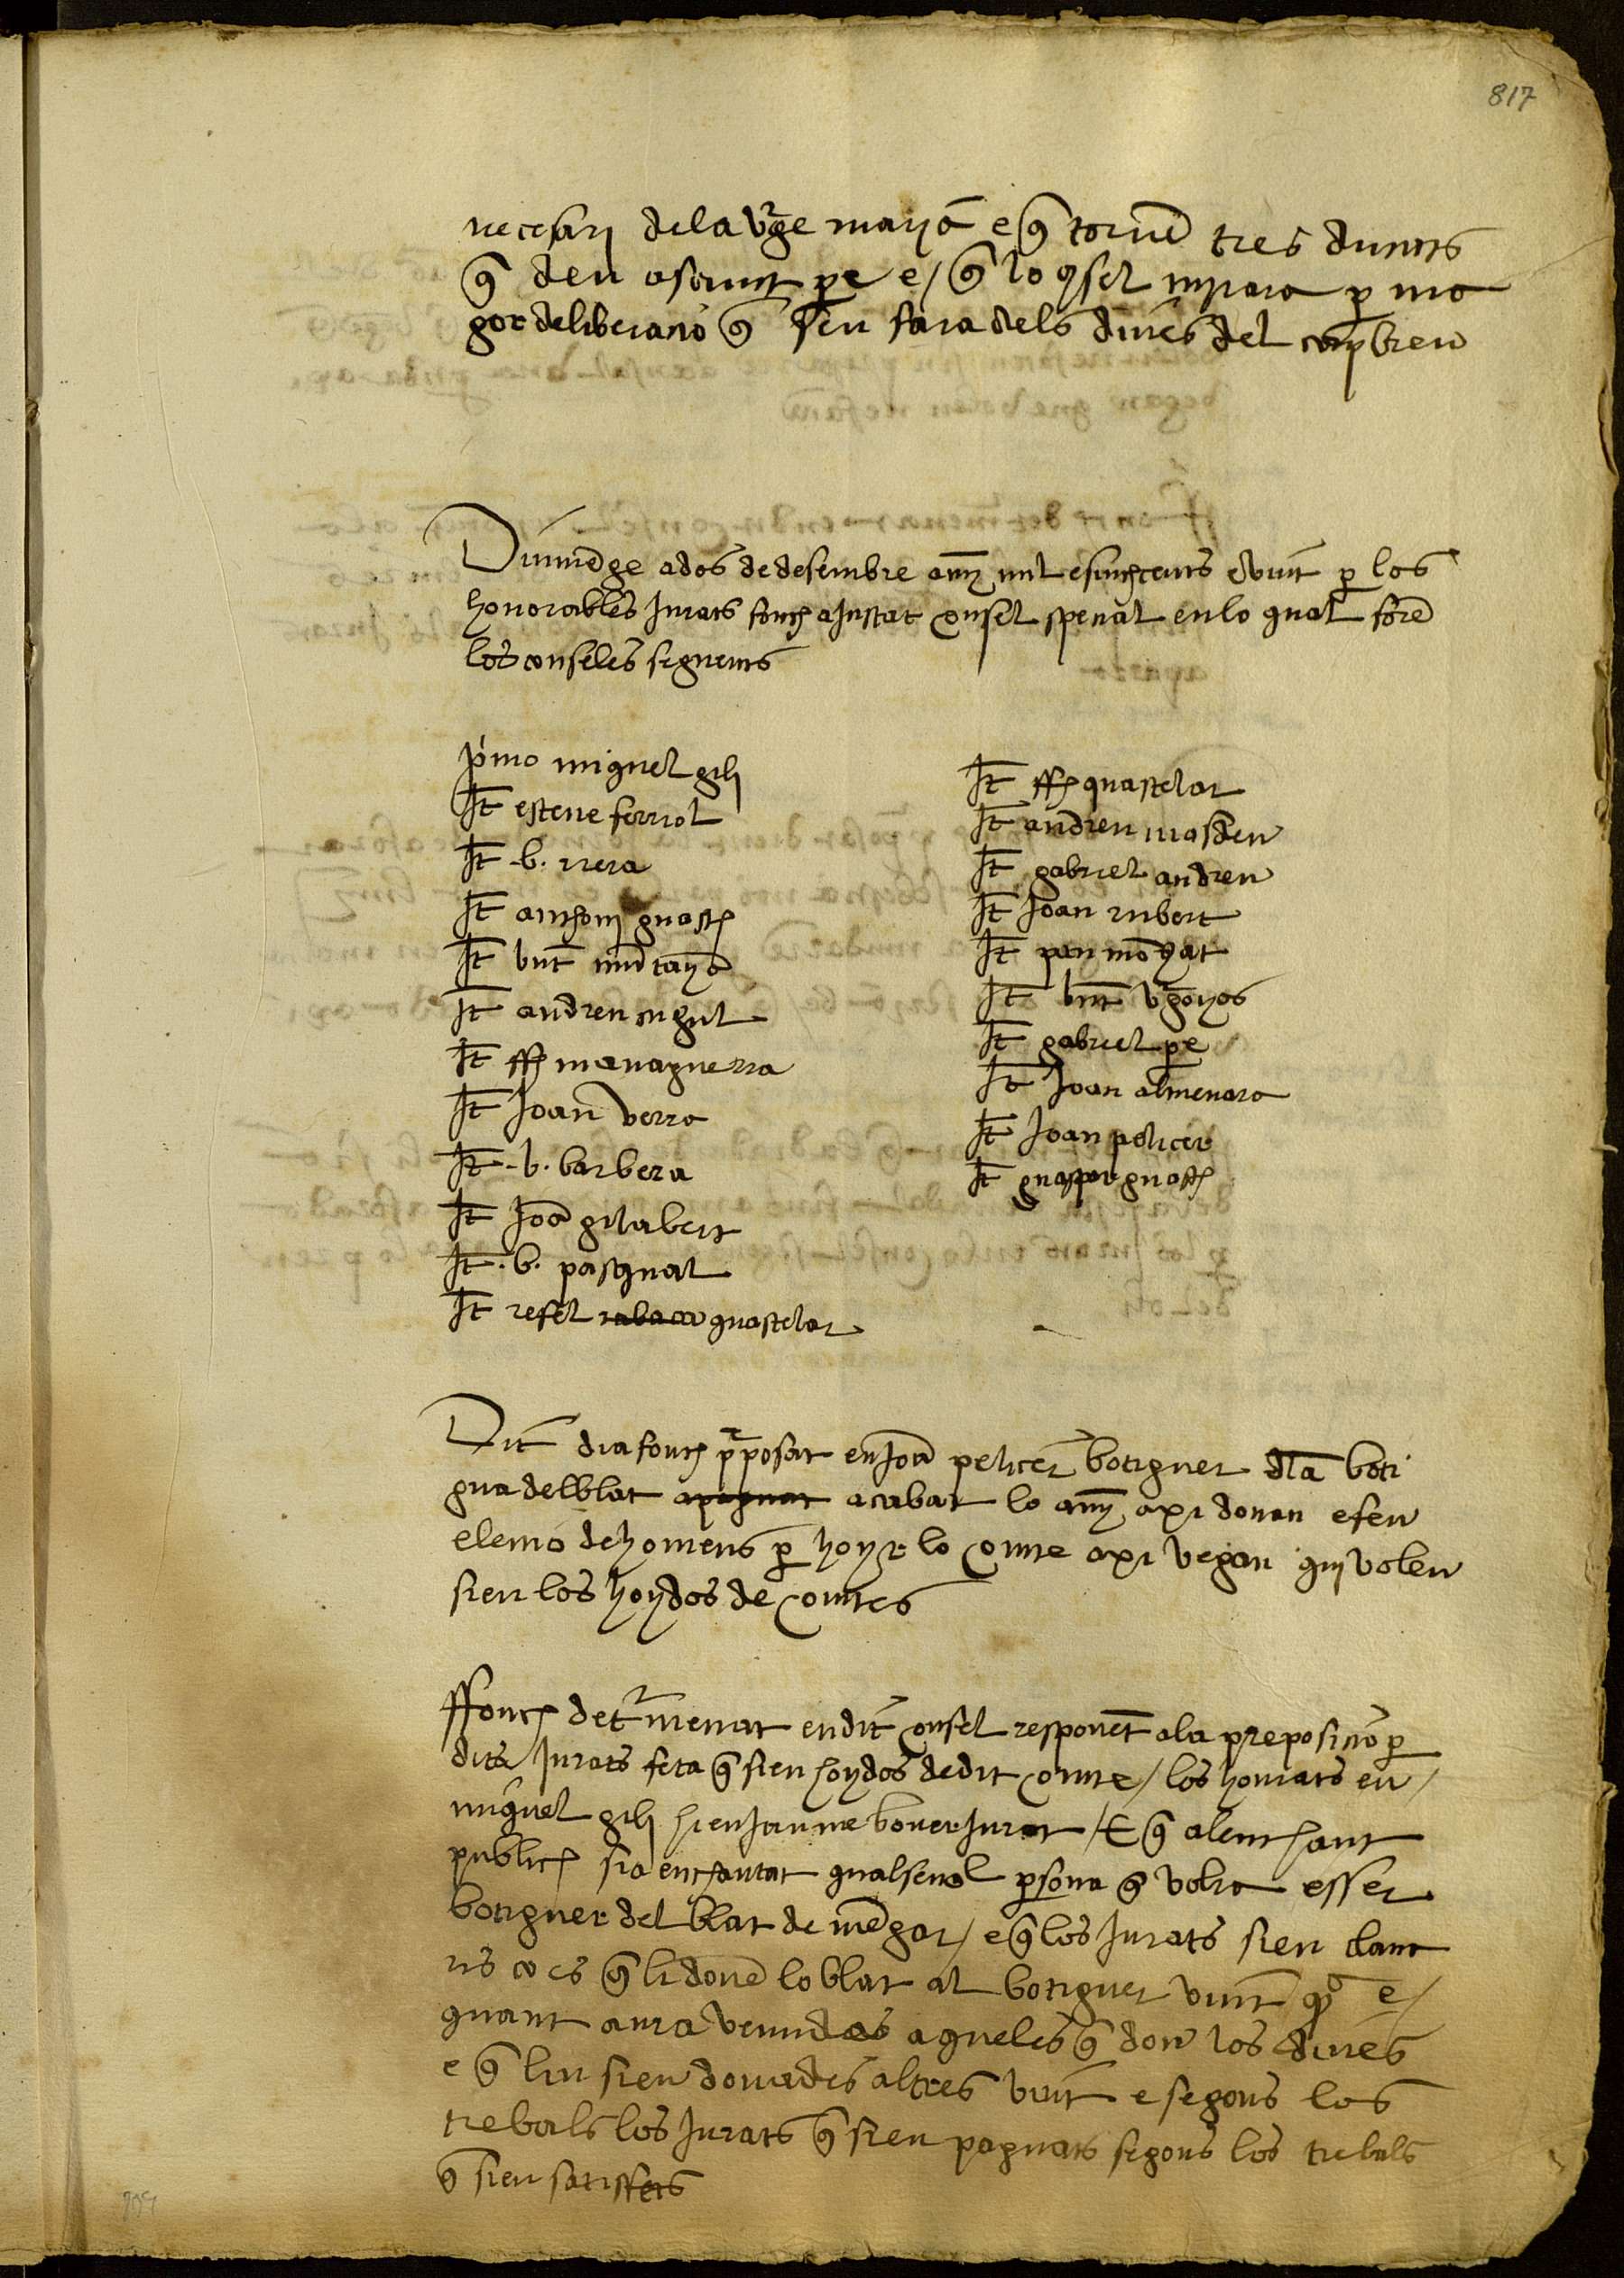 817
necesari dela v̄ge maria e q̄ tornē tres ducats
q̄ deu asciutat pe e / q̄ lo cōsel per ma
gor deliberacio q̄ sen fara dels dines del
Diumēge ados dedesembre any mil esinchcents e vint p̄ los
honorables Jurats fonch aJustat consel spesial enlo qual forē
los conseles seguents
p̄mo miquel gili
It esteve ferriol
It b. riera
It anthoni guasch
It vnt mūtanyā
It andreu cugul
It ffr managuerra
It Joan verra
It b. barbera
It Joā gilabert
It b. pasqual
It refel guastelar
It ffr quastelar
It andreu masdeu
It gabriel andreu
It Joan rubert
It pau mōgat
It vnt v̄gonyos
It gabriel pe
It Joan almenara
It Joan pelicer
It guaspar guasch
Dit dia fonch pposat en Joā pelicer botiguer dla boti
gua delblat apaguat acabat lo any axi donau efeu
elecio dehomens p̄ hoyr lo comte axi vegau qui volen
sien los hoydos de comtes
ffonch detrmenat endit consel responent ala preposicio p̄
dits Jurats feta q̄ sien hoydos dedit comte / los honrats en /
miquel gili hi en Jaume bover Jurat / E q̄ alenchant
publich sia enchantat qualsevol p̄sona q̄ volra esser
botiguer del blat de mēgar / e q̄ los Jurats sien clava
ris co es q̄ li donē lo blat al botiguer vint qo e /
quant aura venudes aqueles q̄ don los dines
e q̄ lin sien donades altres vint e segons los
trebals los Jurats q̄ sien paguats segons los trebals
q̄ sien satisffets